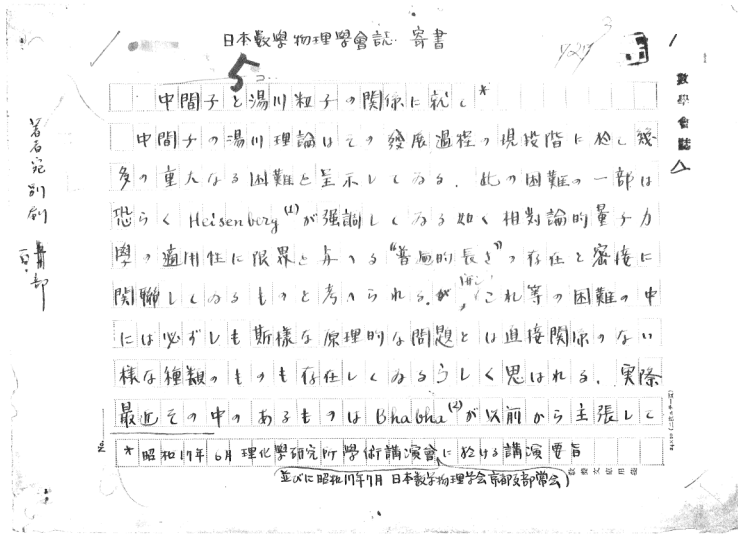 日本數學物理學會誌 寄書
5
中間子と湯川粒子の関係に就て*
中間子の湯川理論はその發展過程の現段階に於て幾
多の重大なる困難を呈示してゐる．此の困難の一部は
恐らく Heisenberg(1)が强調してゐる如く相對論的量子力
學の適用性に限界を与へる"普遍的長さ"の存在と密接に
関聯してゐるものと考へられるが，併しこれ等の困難の中
には必ずしも斯樣な原理的な問題とは直接関係のない
樣な種類のものも存在してゐるらしく思はれる．実際
最近その中のあるものは Bhabha(2)が以前から主張して
*昭和17年6月理化學研究所學術講演會に於ける講演要旨
(並びに昭和17年7月 日本数学物理学会京都支部常会)
數學會誌